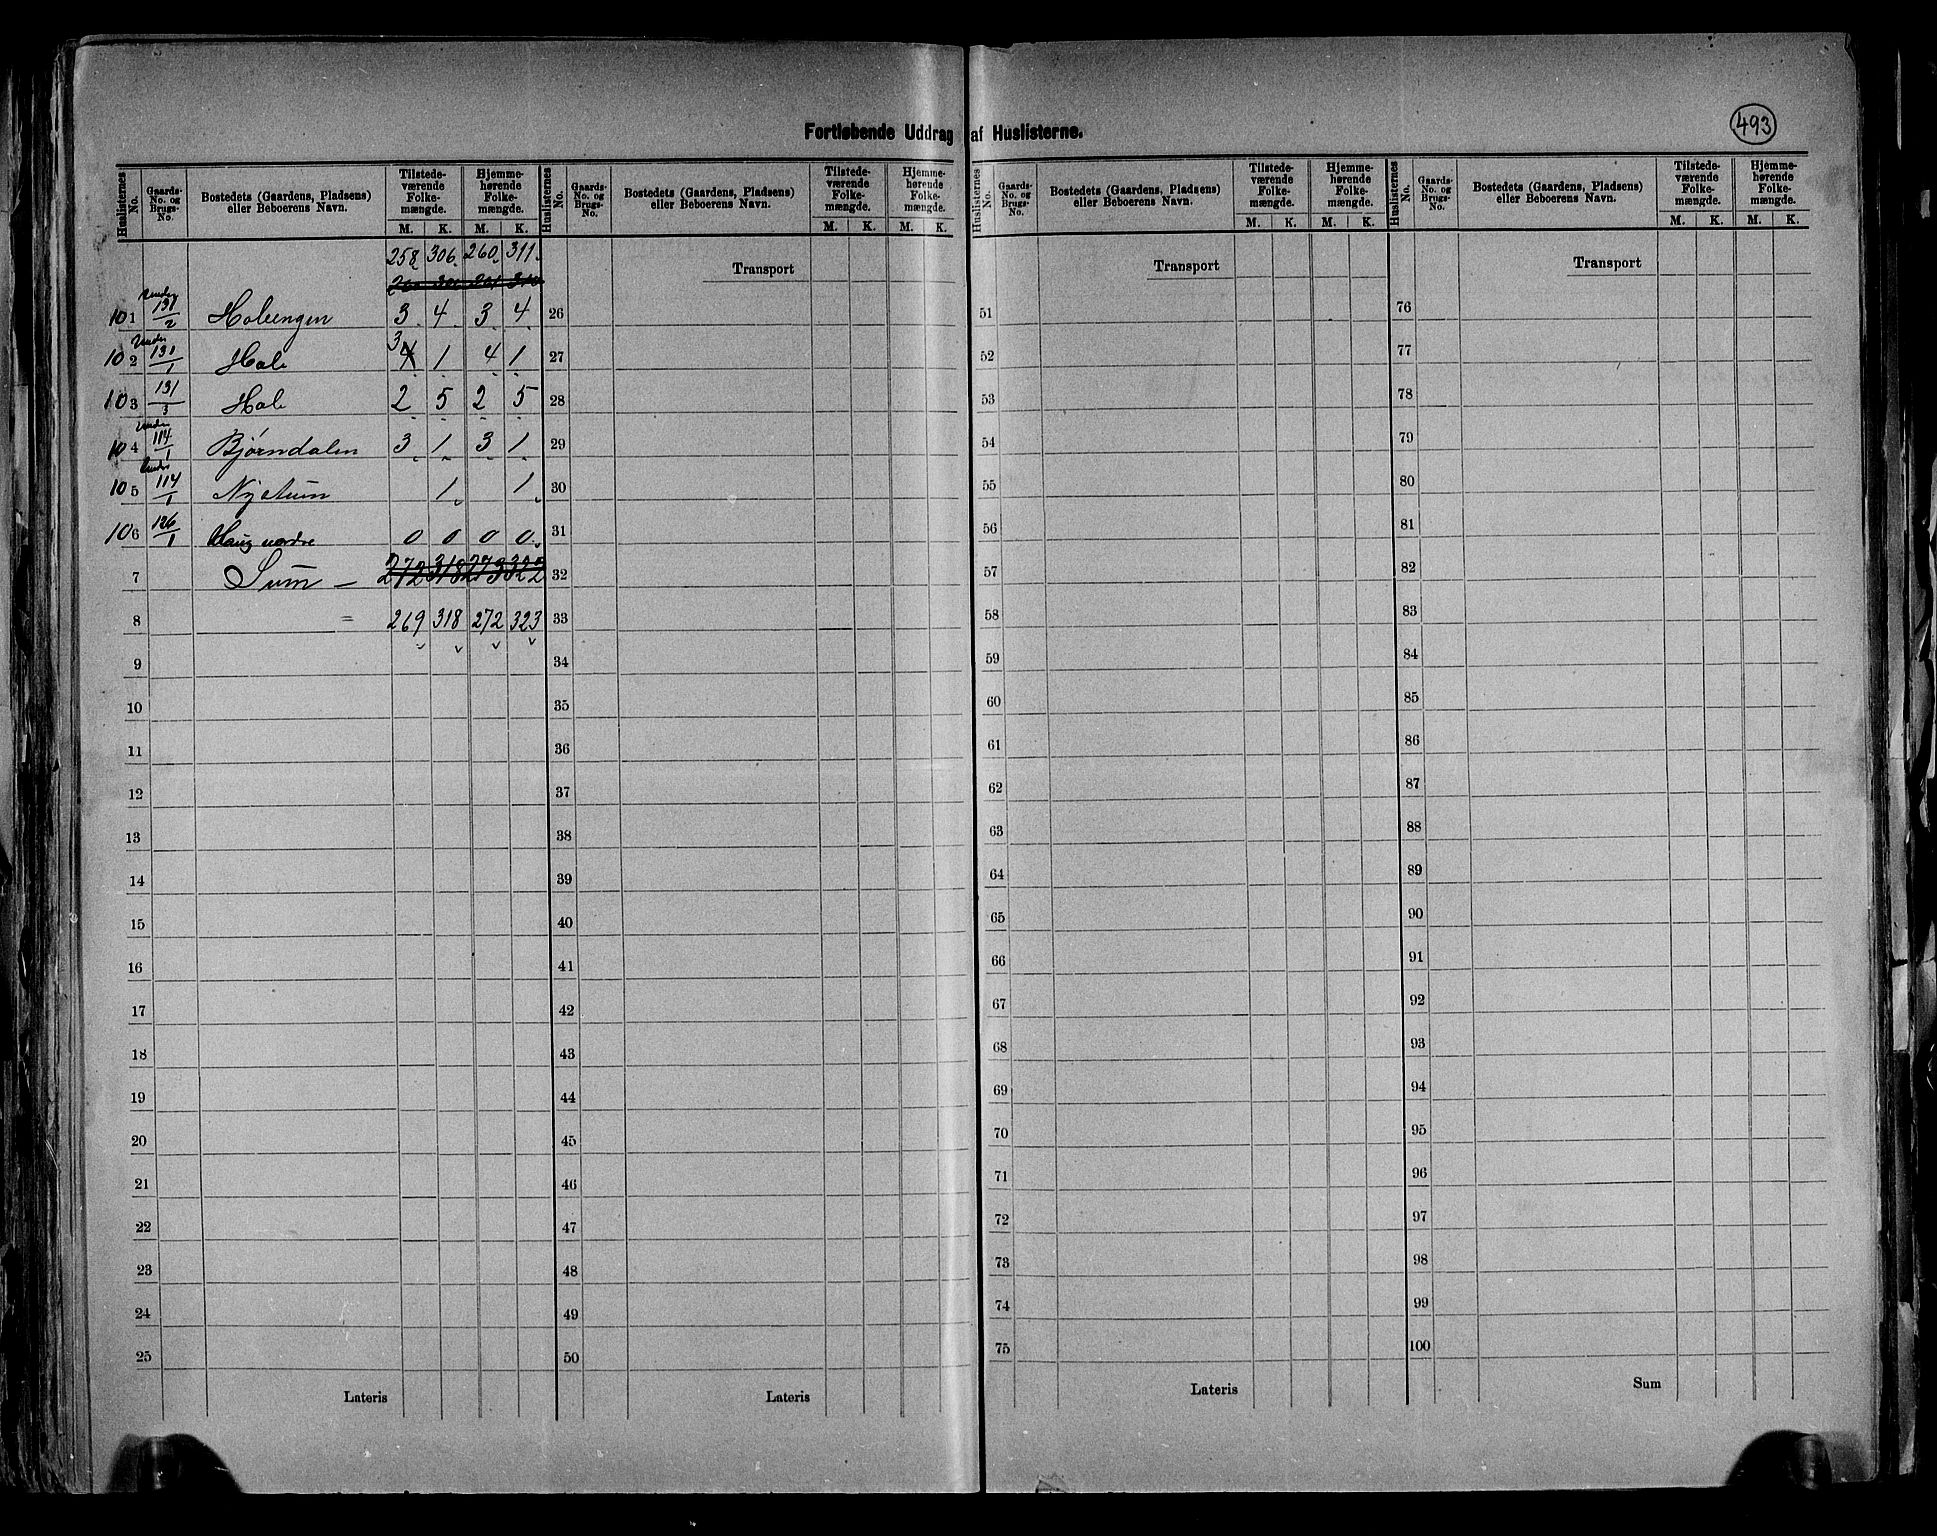 Fortløbende Uddrag af Huslisterne.
493
Huslisternes No. | Gaards-No. og Brugs-No. | Bostedets (Gaardens, Pladsens) eller Beboerens Navn. | Tilstedeværende Folkemængde. M. K. | Hjemmehørende Folkemængde. M. K.
258 306 260 311
101 Under 131/2 Holeengen 3 4 3 4
102 Under 131/1 Hole 3 1 4 1
103 131/3 Hole 2 5 2 5
104 Under 114/1 Bjørndalen 3 1 3 1
105 Under 114/1 Nystuen 1 1
106 126/1 Haug nordre 0 0 0 0
7 Sum — 272 318 273 322
8 = 269 318 272 323
9
10
11
12
13
14
15
16
17
18
19
20
21
22
23
24
25
Lateris
Huslisternes No. | Gaards-No. og Brugs-No. | Bostedets (Gaardens, Pladsens) eller Beboerens Navn. | Tilstedeværende Folkemængde. M. K. | Hjemmehørende Folkemængde. M. K.
Transport
26
27
28
29
30
31
32
33
34
35
36
37
38
39
40
41
42
43
44
45
46
47
48
49
50
Lateris
Huslisternes No. | Gaards-No. og Brugs-No. | Bostedets (Gaardens, Pladsens) eller Beboerens Navn. | Tilstedeværende Folkemængde. M. K. | Hjemmehørende Folkemængde. M. K.
Transport
51
52
53
54
55
56
57
58
59
60
61
62
63
64
65
66
67
68
69
70
71
72
73
74
75
Lateris
Huslisternes No. | Gaards-No. og Brugs-No. | Bostedets (Gaardens, Pladsens) eller Beboerens Navn. | Tilstedeværende Folkemængde. M. K. | Hjemmehørende Folkemængde. M. K.
Transport
76
77
78
79
80
81
82
83
84
85
86
87
88
89
90
91
92
93
94
95
96
97
98
99
100
Sum